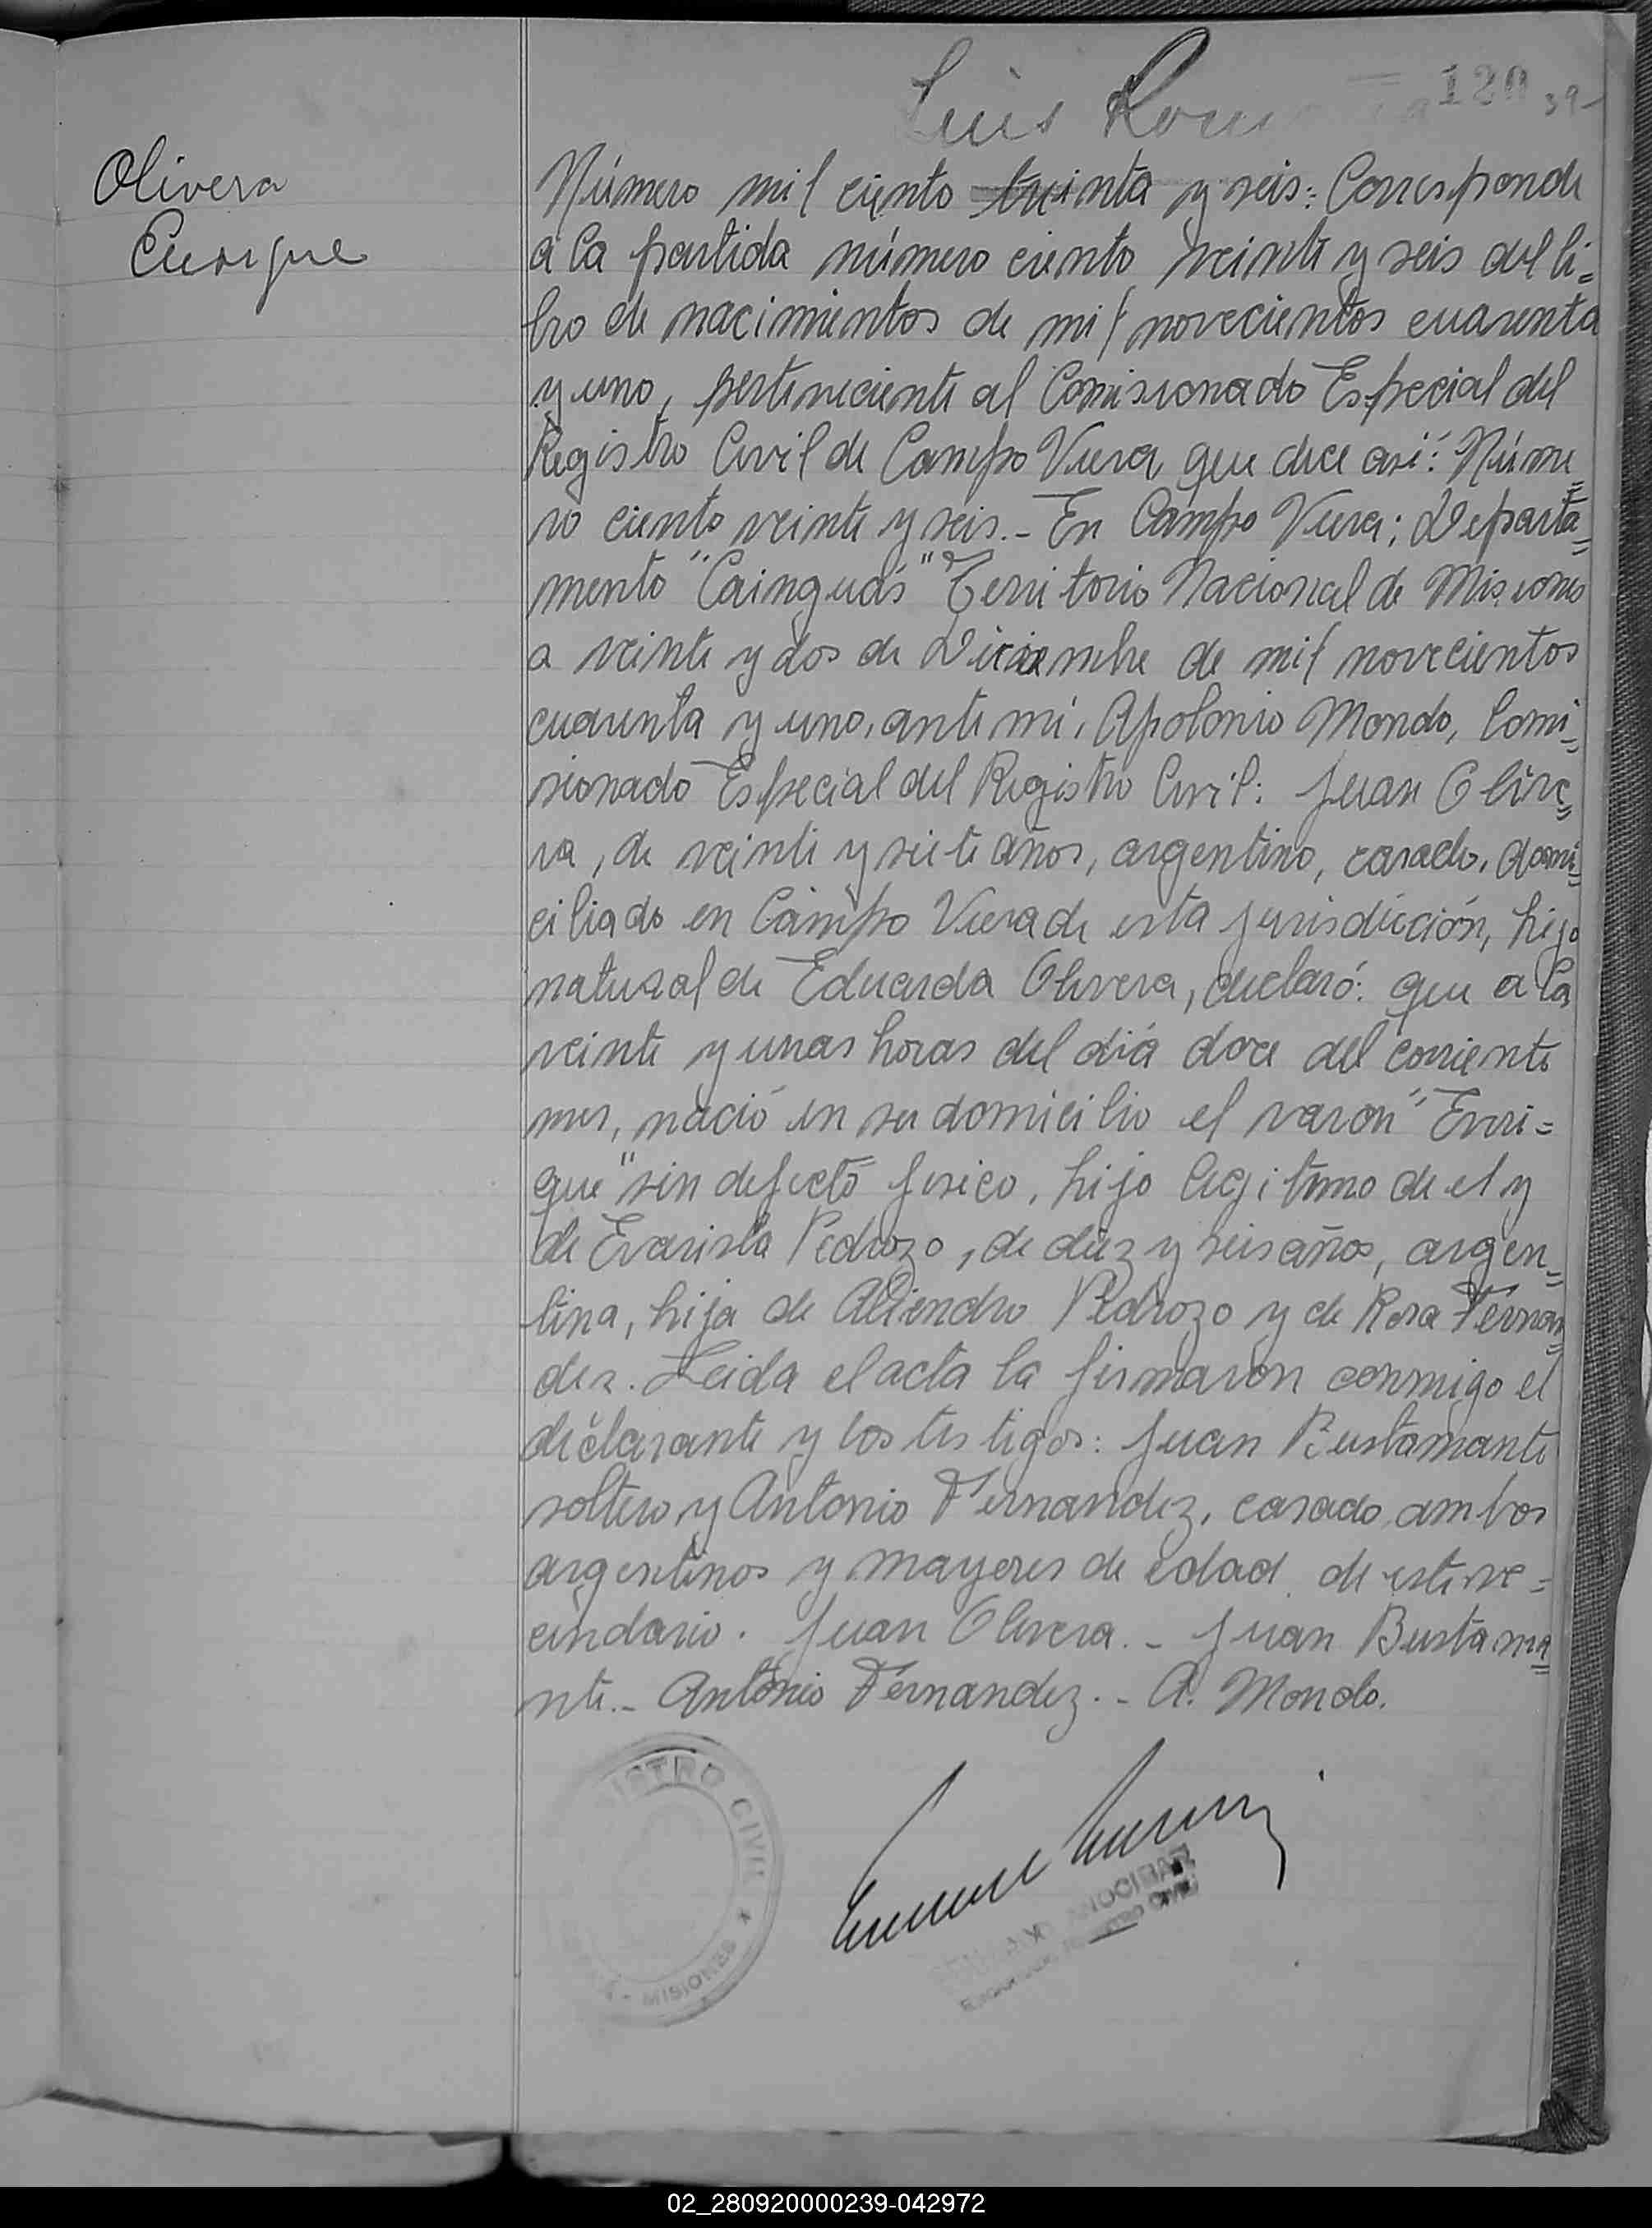 Luis
120 39-
Olivera
Enrique
Número mil ciento treinta y seis: Corresponde
a la partida número ciento veinte y seis del li=
bro de nacimientos de mil novecientos cuarenta
y uno, perteneciente al Comisionado Especial del
Registro Civil de Campo Viera que dice asi: Núme=
ro ciento veinte y seis.- En Campo Viera; Departa=
mento "Cainguás" Territorio Nacional de Misiones
a veinte y dos de Diciembre de mil novecientos
cuarenta y uno, ante mi, Apolonio Mondo, Comi=
sionado Especial del Registro Civil: Juan Olive=
ra, de veinti y siete años, argentino, casado, domi=
ciliado en Campo Viera de esta jurisdicción, hijo
natural de Eduarda Olivera, declaró: que a las
veinte y unas horas del diá doce del corriente
mes, nació en su domicilio el varon "Enri=
que" sin defecto fisico, hijo legitimo de el y
de Evarista Pedrozo, de diez y seis años, argen=
tina, hija de Pedrozo y de Rosa Fernan=
dez. Leida el acta la firmaron conmigo el
declarante y los testigos: Juan Bustamante
soltero y Antonio Fernandez, casado, ambos
argentinos y mayores de edad de este ve=
cindario. Juan Olivera.- Juan Bustama=
nte.- Antonio Fernandez.- A. Mondo.
REGISTRO CIVIL
MISIONES
REGISTRO CIVIL
02_280920000239-042972